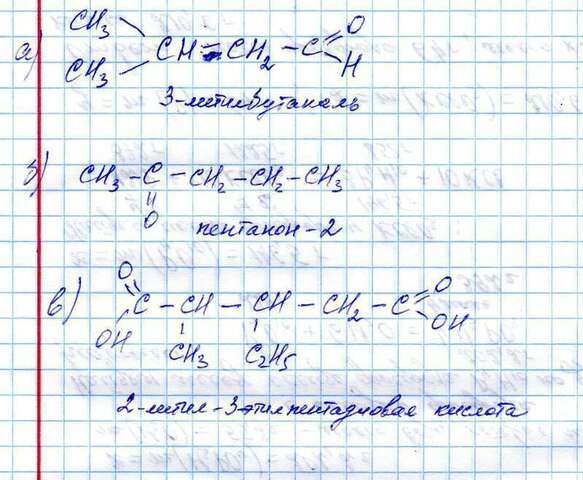 а) CH3 CH3 CH – CH2 – C O H
3-метилбутаналь
б) CH3 – C – CH2 – CH2 – CH3
O
пентанон-2
в) O OH C – CH – CH – CH2 – C O OH
CH3 C2H5
2-метил-3-этилпентадиовая кислота